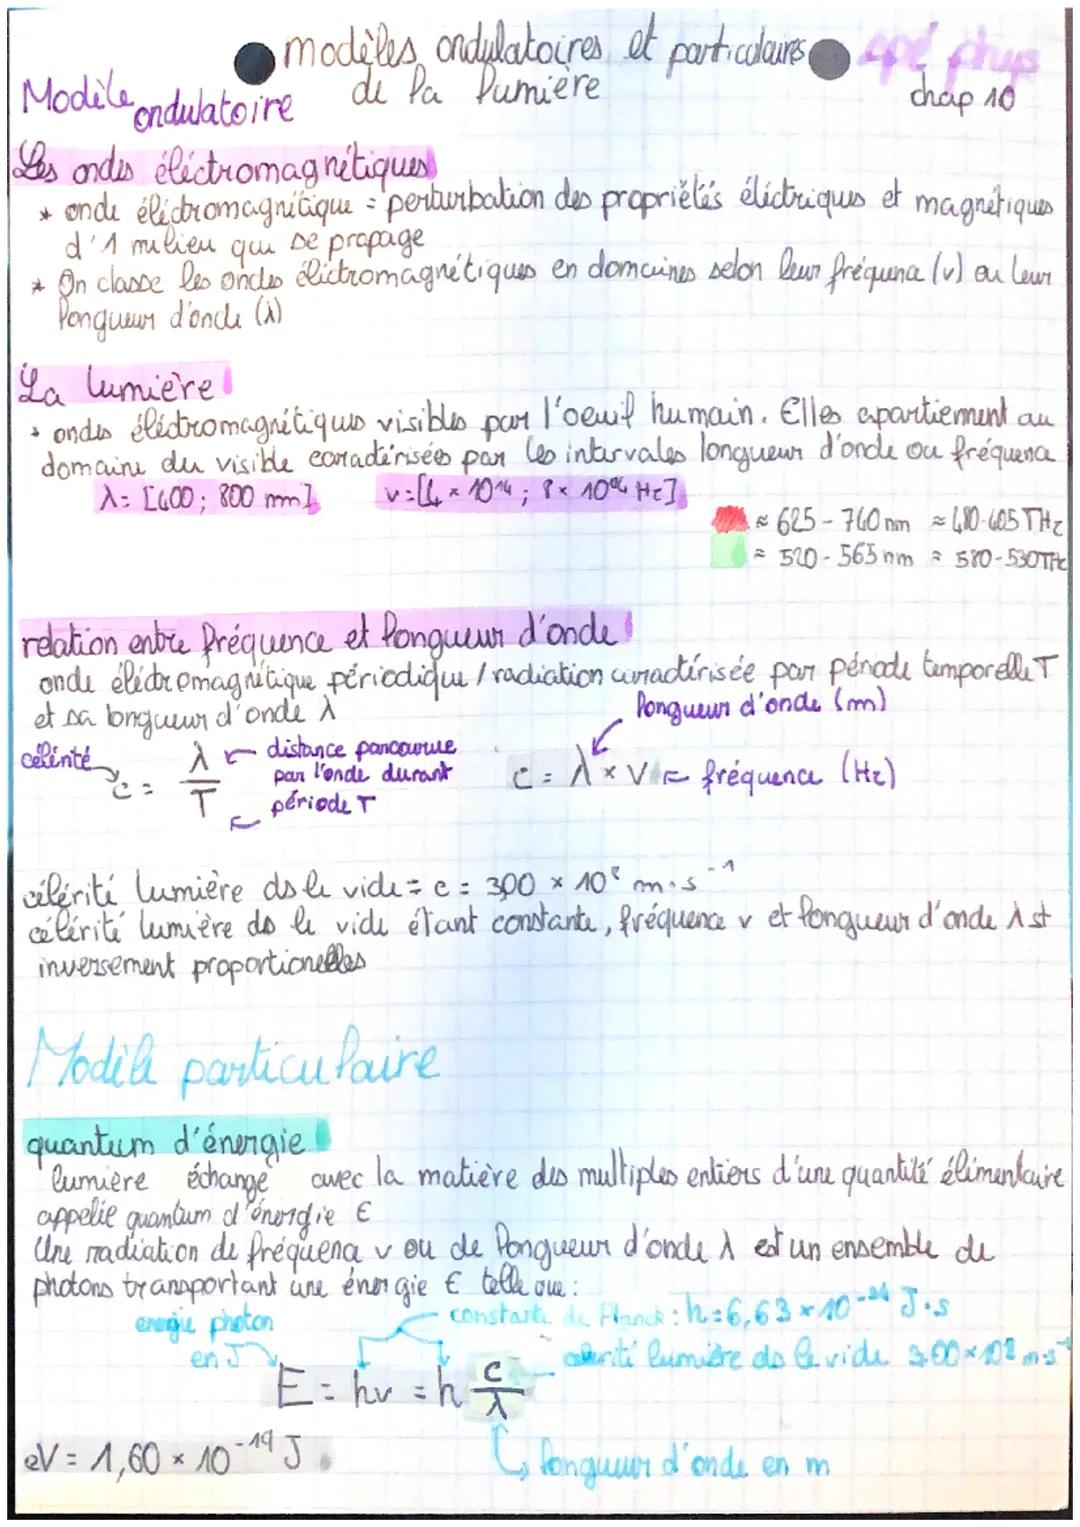 modèles ondulatoires et particulaires spé phys
de la lumière chap 10
Modèle ondulatoire
Les ondes éléctromagnétiques
* onde éléctromagnétique = perturbation des propriétés éléctriques et magnétiques
d'1 milieu qui se propage
* On classe les ondes éléctromagnétiques en domaines selon leur fréquence (v) ou leur
longueur d'onde (λ)
La lumière
* ondes éléctromagnétiques visibles par l'oeuil humain. Elles apartiennent au
domaine du visible caractérisées par les intervales longueur d'onde ou fréquence
λ= [400; 800 nm] v=[4 × 10¹⁴ ; 8 × 10¹⁴ Hz]
≈ 625 - 740 nm ≈ 480-405 THz
≈ 520 - 565 nm ≈ 580-530THz
relation entre fréquence et longueur d'onde
onde éléctromagnétique périodique / radiation caractérisée par période temporelle T
et sa longueur d'onde λ
longueur d'onde (m)
célérité c = λ / T distance parcourue par l'onde durant période T
c = λ × v fréquence (Hz)
célérité lumière ds le vide = c = 3,00 × 10⁸ m.s⁻¹
célérité lumière ds le vide étant constante, fréquence v et longueur d'onde λ st
inversement proportionelles
Modèle particulaire
quantum d'énergie
lumière échange avec la matière des multiples entiers d'une quantité élémentaire
appelée quantum d'énergie E
Une radiation de fréquence v ou de longueur d'onde λ est un ensemble de
photons transportant une énergie E telle que:
energie photon en J
constante de Planck : h=6,63 × 10⁻³⁴ J.s
célérité lumière ds le vide 3.00×10⁸ m.s⁻¹
E = hv = h c/λ
eV = 1,60 × 10⁻¹⁹ J
longueur d'onde en m